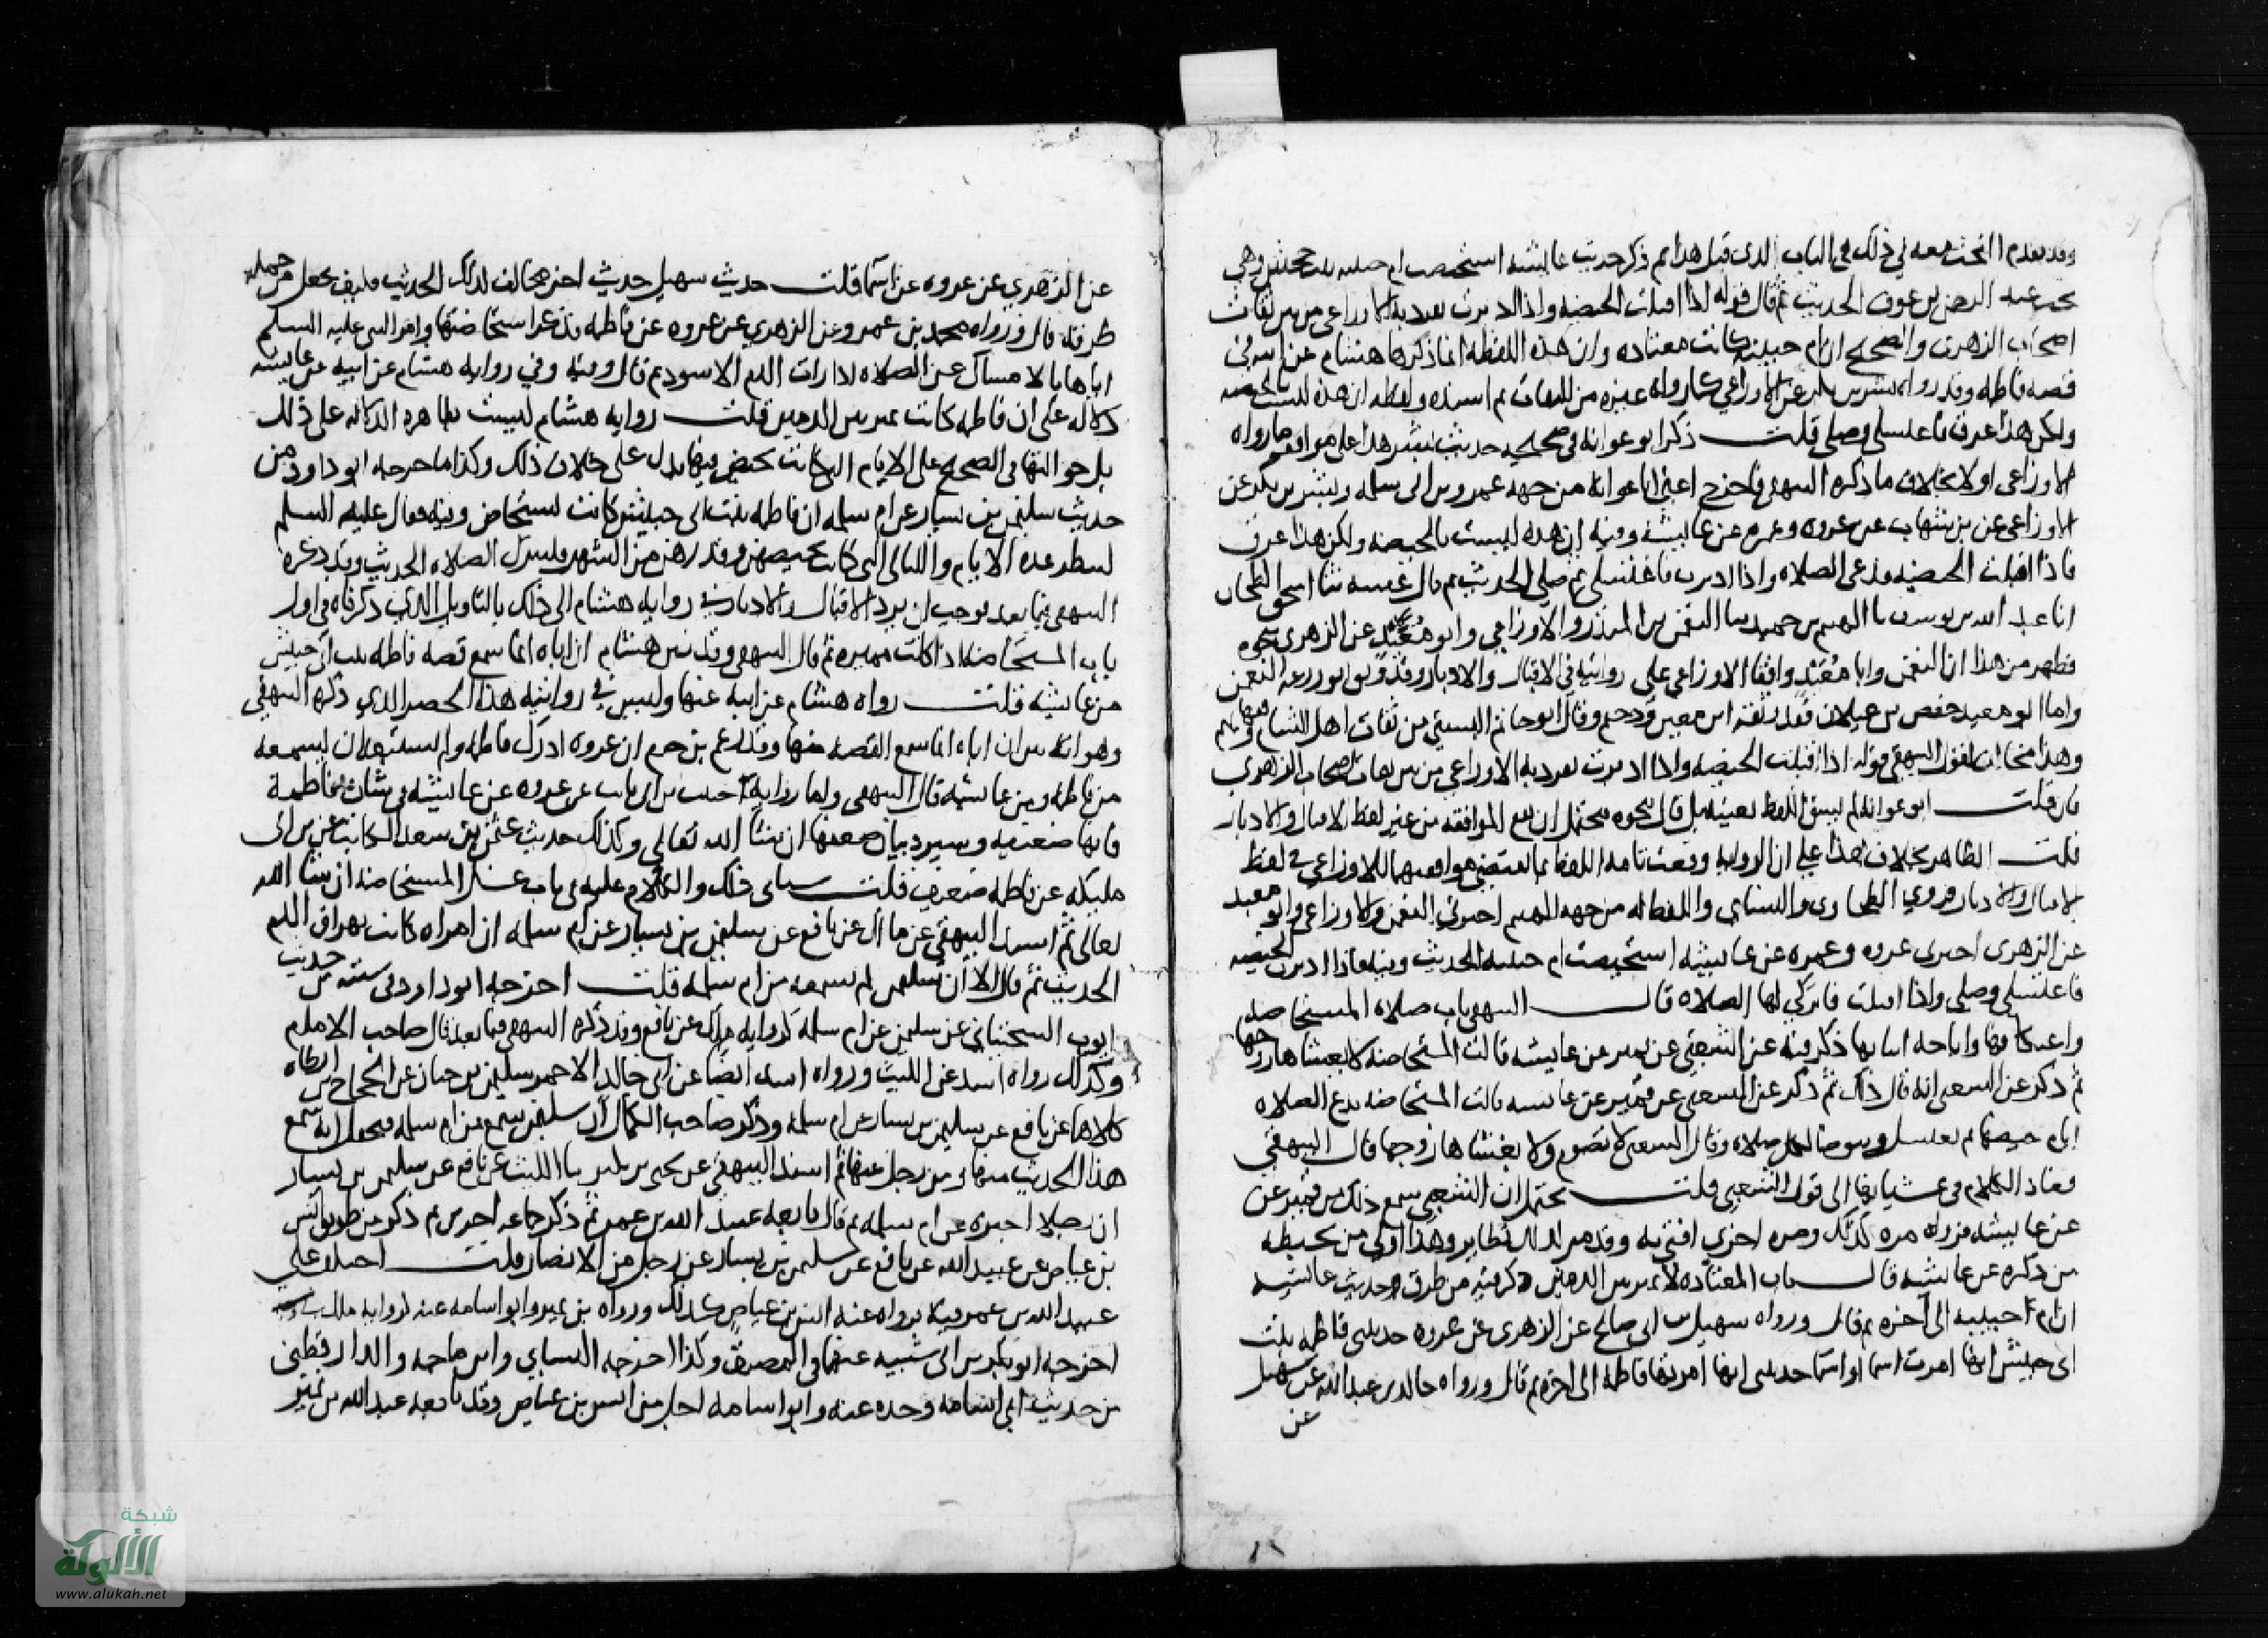 وقد تقدم البحث معه في ذلك في الباب الذي قبل هذا ثم ذكر حديث عايشه استحيضت ام حبيبه بنت جحش وهي
تحت عبد الرحمن بن عوف الحديث ثم قال قوله اذا اقبلت الحيضه واذا ادبرت تفرد به الاوزاعي من بين ثقات
اصحاب الزهري والصحيح ان ام حبيبه كانت معتاده وان هذه اللفظه انما ذكرها هشام عن ابيه في
قصه فاطمه وقد رواه بشر بن بكر عن الاوزاعي كما رواه غيره من الثقات ثم اسنده ولفظه ان هذه ليست بالحيضه
ولكن هذا عرق فاغتسلي وصلي قلت ذكر ابو عوانه في صحيحه حديث بشر هذا على موافقه ما رواه
الاوزاعي اولا بخلاف ما ذكره البيهقي فاخرج اعني ابا عوانه من جهه عمرو بن ابي سلمه وبشر بن بكر عن
الاوزاعي عن بن شهاب عن عروه وعمره عن عايشه وفيه ان هذه ليست بالحيضه ولكن هذا عرق
فاذا اقبلت الحيضه فدعي الصلاه واذا ادبرت فاغتسلي ثم صلي الحديث ثم قال ثنا اسحق الطحان
انا عبد الله بن يوسف نا الهيثم بن حميد ثنا النعمن بن المنذر والاوزاعي وابو مُعَيْد عن الزهري نحوه
فظهر من هذا ان النعمن وابا مُعَيْد وافقا الاوزاعي على روايته في الاقبال والادبار وقد وثق ابو زرعه النعمن
واما ابو معيد حفص بن غيلان فقد وثقه ابن معين ودحيم وقال ابو حاتم البستي من ثقات اهل الشام وفقهايهم
وهذا مخالف لقول البيهقي قوله اذا اقبلت الحيضه واذا ادبرت تفرد به الاوزاعي من بين ثقات اصحاب الزهري
فان قلت ابو عوانه لم يسق اللفظ بعينه بل قال نحوه فيحتمل ان تقع الموافقه من غير لفظ الاقبال والادبار
قلت الظاهر بخلاف هذا على ان الروايه وقعت تامه اللفظ بما يقتضي موافقتهما للاوزاعي في لفظ
الاقبال والادبار فروي الطحاوي والنساي واللفظ له من جهه الهيثم اخبرني النعمن والاوزاعي وابو معيد
عن الزهري اخبرني عروه وعمره عن عايشه استحيضت ام حبيبه الحديث وفيه فاذا ادبرت الحيضه
فاغتسلي وصلي واذا اقبلت فاتركي لها الصلاه قال البيهقي باب صلاه المستحاضه
واعتكافها واباحه اتيانها ذكر فيه عن الشعبي عن قمير عن عايشه قالت المستحاضه لا يغشاها زوجها
ثم ذكر عن الشعبي انه قال ذلك ثم ذكر عن الشعبي عن قمير عن عايشه قالت المستحاضه تدع الصلاه
ايام حيضها ثم تغتسل وتتوضا لكل صلاه وقال الشعبي لا تصوم ولا يغشاها زوجها قال البيهقي
فعاد الكلام في غشيانها الى قول الشعبي قلت يحتمل ان الشعبي سمع ذلك من قمير عن
عن عايشه فرواه مره كذلك ومره اخرى افتى به وقد مر لذلك نظاير وهذا اولى من تخطيه
من ذكره عن عايشه قال باب المعتاده لا تميز بين الدمين ذكر فيه من طرق حديث عايشه
ان ام حبيبه الى آخره ثم قال ورواه سهيل بن ابي صالح عن الزهري عن عروه حدثتني فاطمه بنت
ابي حبيش انها امرت اسما او اسما حدثتني انها امرتها فاطمه الى اخره ثم قال ورواه خالد بن عبد الله عن سهيل
عن
عن الزهري عن عروه عن اسما قلت حديث سهيل حديث اخر مخالف لذلك الحديث فكيف يجعل من جمله
طرقه قال ورواه محمد بن عمرو عن الزهري عن عروه عن فاطمه فذكر استحاضتها وامر النبي عليه السلم
اياها بالامساك عن الصلاه اذا رات الدم الاسود ثم قال وفيه وفي روايه هشام عن ابيه عن عايشه
دلاله على ان فاطمه كانت تميز بين الدمين قلت روايه هشام ليست بظاهره الدلاله على ذلك
بل حوالتها في الصحيح على الايام التي كانت تحيض فيها يدل على خلاف ذلك وكذا ما خرجه ابو داود من
حديث سليمن بن يسار عن ام سلمه ان فاطمه بنت ابي حبيش كانت تستحاض وفيه فقال عليه السلم
لتنظر عده الايام والليالي التي كانت تحيضهن وقدرهن من الشهر فلتترك الصلاه الحديث وقد ذكره
البيهقي فيما بعد فوجب ان يرد الاقبال والادبار في روايه هشام الى ذلك بالتاويل الذي ذكرناه في اول
باب المستحاضه اذا كانت مميزه ثم قال البيهقي وقد بين هشام ان اباه انما سمع قصه فاطمه بنت ابي حبيش
من عايشه قلت رواه هشام عن ابيه عنها وليس في روايته هذا الحصر الذي ذكره البيهقي
وهو انه بين ان اباه انما سمع القصه منها وقد زعم بن حزم ان عروه ادرك فاطمه ولم يستبعد ان يسمعه
من فاطمه ومن عايشه قال البيهقي واما روايه حبيب بن ابي ثابت عن عروه عن عايشه في شان فاطمة
فانها ضعيفه وسيرد بيان ضعفها ان شا الله تعالى وكذلك حديث عثمن بن سعد الكاتب عن بن ابي
مليكه عن فاطمه ضعيف قلت سياتي ذلك والكلام عليه في باب غسل المستحاضه ان شا الله
تعالى ثم اسند البيهقي عن مالك عن نافع عن سليمن بن يسار عن ام سلمه ان امراه كانت تهراق الدم
الحديث ثم قال الا ان سليمن لم يسمعه من ام سلمه قلت اخرجه ابو داود في سننه من حديث
ايوب السختياني عن سليمن عن ام سلمه كروايه ملك عن نافع وقد ذكره البيهقي فيما بعد قال صاحب الامام
وكذلك رواه اسد عن الليث ورواه اسد ايضا عن ابي خالد الاحمر سليمن بن حيان عن الحجاج بن ارطاه
كلاهما عن نافع عن سليمن بن يسار عن ام سلمه وذكر صاحب الكمال ان سليمن سمع من ام سلمه فيحمل انه سمع
هذا الحديث منها ومن رجل عنها ثم اسند البيهقي عن يحيى بن بكير ثنا الليث عن نافع عن سليمن بن يسار
ان رجلا اخبره عن ام سلمه ثم قال تابعه عبيد الله بن عمر ثم ذكر جماعه اخرين ثم ذكر من طريق انس
بن عياض عن عبيد الله عن نافع عن سليمن بن يسار عن رجل من الانصار قلت اختلف على
عبيد الله بن عمر فيه فرواه عنه انس بن عياض كذلك ورواه بن نمير وابو اسامه عنه كروايه ملك
اخرجه ابو بكر بن ابي شيبه عنهما في المصنف وكذا اخرجه النساي وابن ماجه والدارقطني
من حديث ابي اسامه وحده عنه وابو اسامه اجل من انس بن عياض وقد تابعه عبد الله بن نمير
شبكة
الألوكة
www.alukah.net